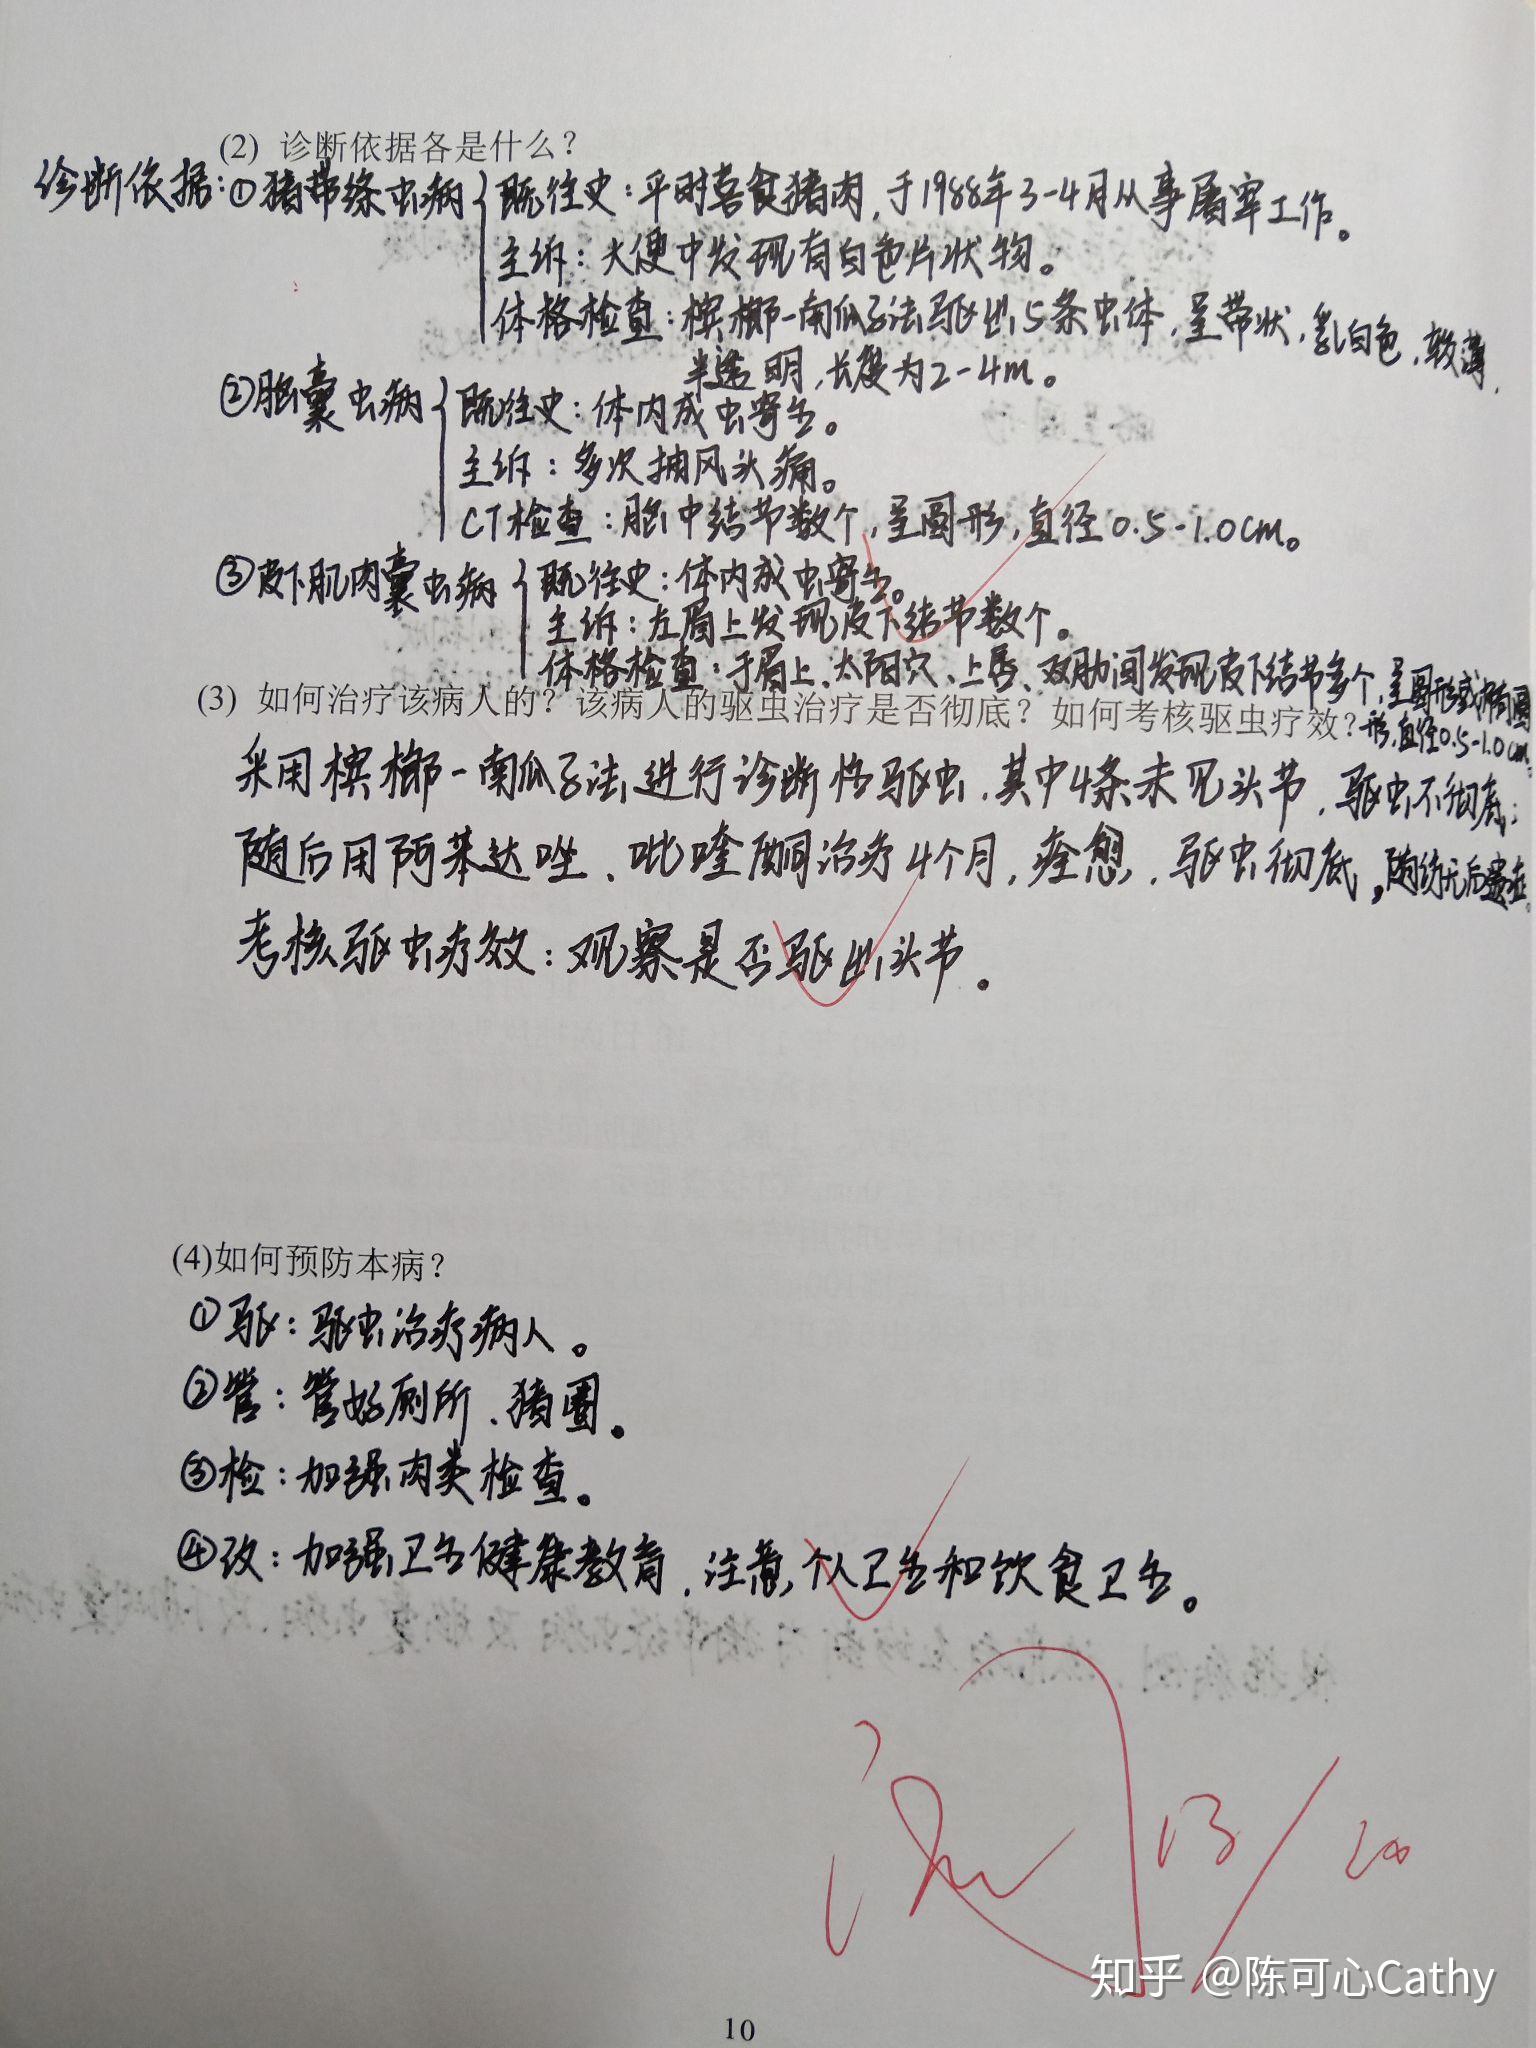 (2) 诊断依据各是什么？
诊断依据：①猪带绦虫病 既往史：平时喜食猪肉，于1988年3-4月从事屠宰工作。
主诉：大便中发现有白色片状物。
体格检查：槟榔-南瓜子法驱出5条虫体，呈带状，乳白色，较薄，
半透明，长度为2-4m。
②脑囊虫病 既往史：体内成虫寄生。
主诉：多次抽风头痛。
CT检查：脑中结节数个，呈圆形，直径0.5-1.0cm。
③皮下肌肉囊虫病 既往史：体内成虫寄生。
主诉：左眉上发现皮下结节数个。
体格检查：于眉上、太阳穴、上唇、双肋间发现皮下结节多个，呈圆形或椭圆
形，直径0.5-1.0cm。
(3) 如何治疗该病人的？该病人的驱虫治疗是否彻底？如何考核驱虫疗效？
采用槟榔-南瓜子法进行诊断性驱虫，其中4条未见头节，驱虫不彻底；
随后用阿苯达唑、吡喹酮治疗4个月，痊愈，驱虫彻底，随访无后遗症。
考核驱虫疗效：观察是否驱出头节。
(4)如何预防本病？
①驱：驱虫治疗病人。
②管：管好厕所、猪圈。
③检：加强肉类检查。
④改：加强卫生健康教育，注意个人卫生和饮食卫生。
13/20
知乎 @陈可心Cathy
10